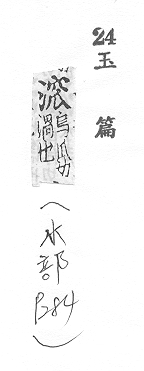 24 玉篇
烏瓜切
渦也
(水部 P.284)